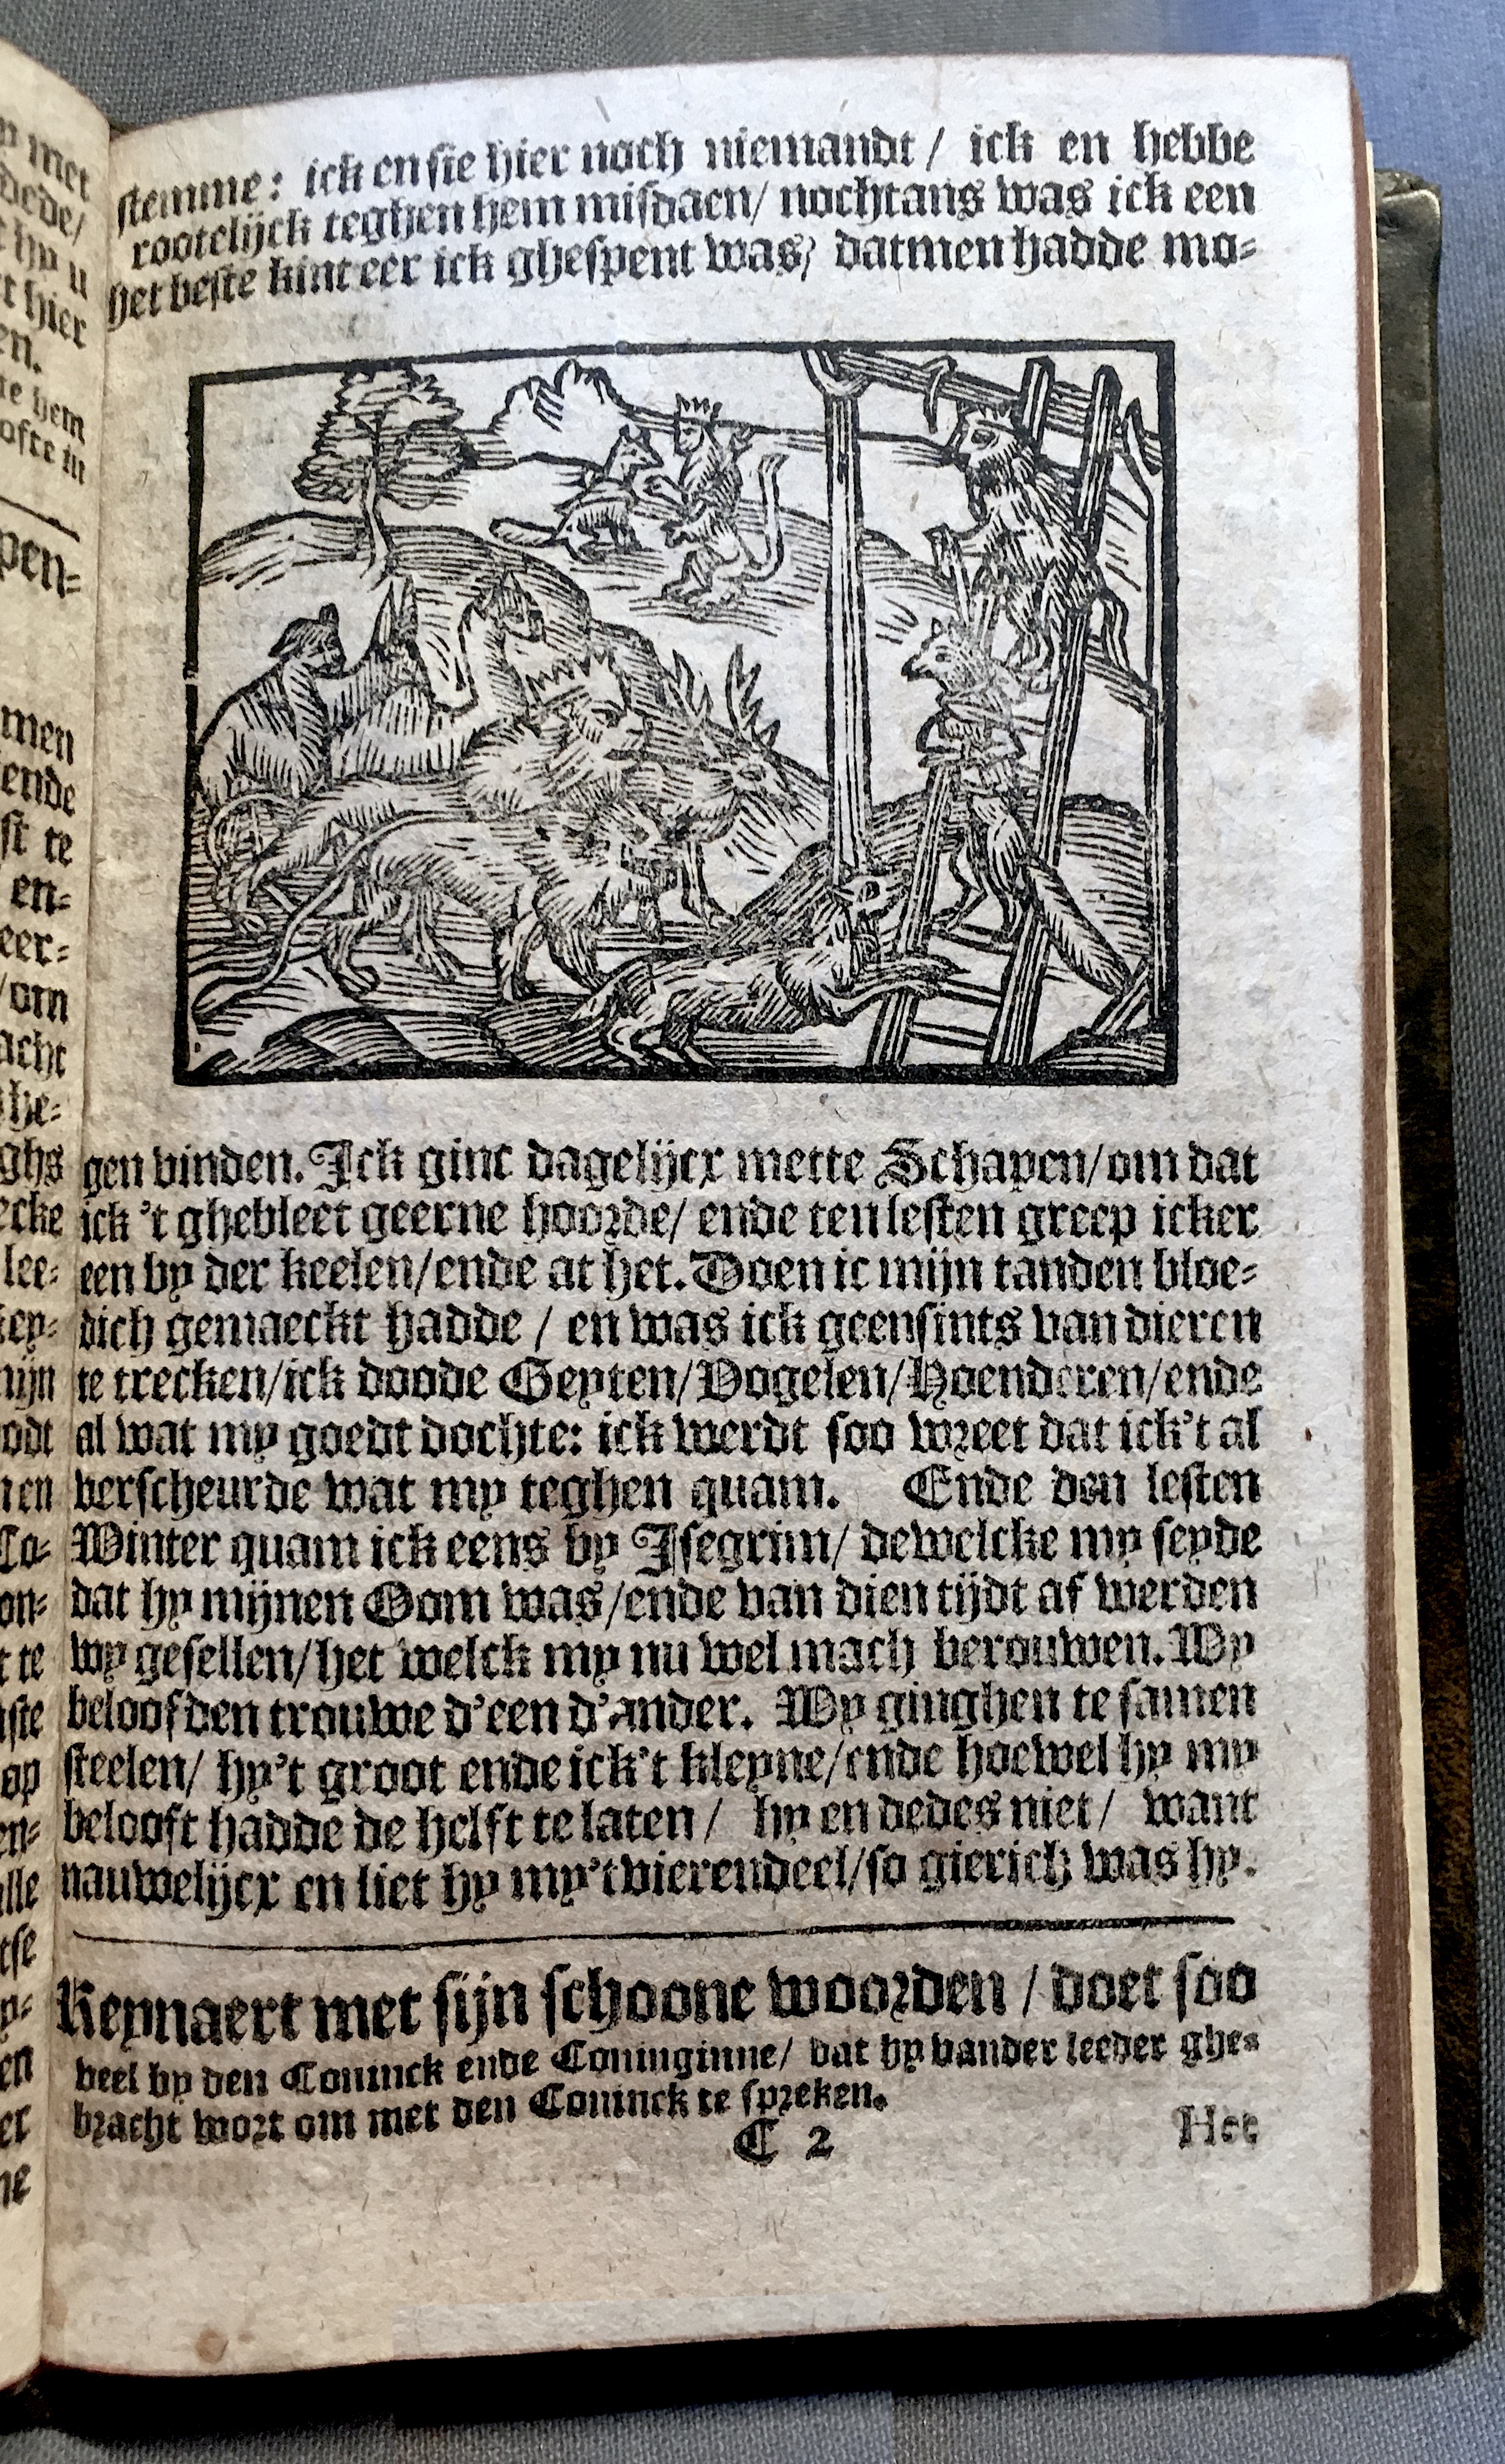 stemme: ick en sie hier noch niemandt / ick en hebbe
rootelijck teghen hem misdaen/ nochtans was ick een
het beste kint eer ick ghespent was/ datmen hadde mo-
gen vinden. Ick ginc dagelijcx mette Schapen/om dat
ick 't ghebleet geerne hoorde/ ende ten lesten greep icker
een by der keelen/ende at het. Doen ic mijn tanden bloe-
dich gemaeckt hadde / en was ick geensints van dieren
te trecken/ick doode Geyten/Vogelen/Hoenderen/ende
al wat my goedt dochte: ick werdt soo wreet dat ick't al
verscheurde wat my teghen quam. Ende den lesten
Winter quam ick eens by Isegrim/ dewelcke my seyde
dat hy mijnen Oom was/ende van dien tijdt af werden
wy gesellen/het welck my nu wel mach berouwen. Wy
beloofden trouwe d'een d'ander. Wy ginghen te samen
steelen/ hy't groot ende ick't kleyne/ende hoewel hy my
belooft hadde de helft te laten / hy en dedes niet / want
nauwelijcx en liet hy my't vierendeel/so gierich was hy.
Reynaert met sijn schoone woorden / doet soo
veel by den Coninck ende Coninginne/ dat hy vander leeder ghe-
bracht wort om met den Coninck te spreken.
C 2
Het